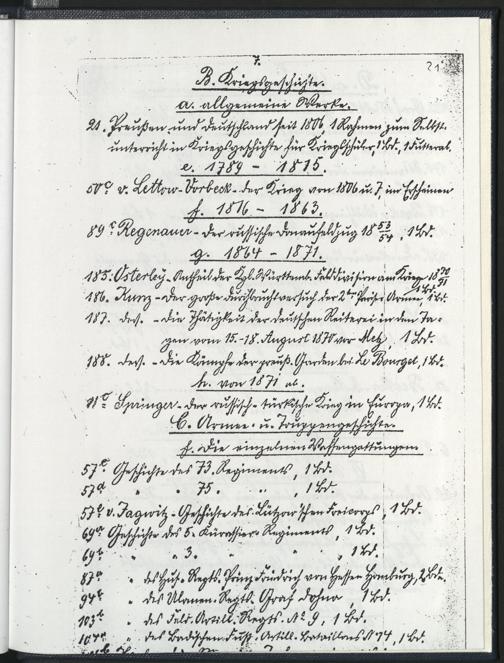 7.
21
B. Kriegsgeschichte.
a. allgemeine Werke.
21. Preußen und Deutschland seit 1806, 1 Rahmen zum Selbst-
unterricht in Kriegsgeschichte für Kriegsschüler, 1 Bd, 1
e. 1789 - 1815.
50c v. Lettow-Vorbeck - der Krieg von 1806 u. 7, im Erscheinen
f. 1816 - 1863.
89 Regenauer - der russische Donaufeldzug 18 53/54, 1 Bd.
g. 1864 - 1871.
185. Osterley - Antheil der Kgl. Württemb. Felddivision am Kriege 1870/71 1 Bd.
186. Kunz - der große Durchbruchversuch der 2ten Pariser Armee, 1 Bd.
187. ders. - die Thätigkeit der deutschen Reiterei in den Ta-
gen vom 15.-18. August 1870 vor Metz, 1 Bd.
188. ders. - die Kämpfe der preuß. Garden bei Le Bourget, 1 Bd.
h. von 1871 ab.
Springer - der russisch-türkische Krieg in Europa, 1 Bd.
C. Armee- u. Truppengeschichte.
f. die einzelnen Waffengattungen
57c Geschichte des 73. Regiments, 1 Bd.
57d " " 75. " " , 1 Bd.
v. Jagwitz - Geschichte des Lützow'schen Freicorps, 1 Bd.
69a Geschichte des 5. Kürassier-Regiments, 1 Bd.
69b " " 3. " " , 1 Bd.
87a " des Hus. Regts. Prinz Friedrich von Hessen Homburg, 2 Bde.
94b " des Ulanen-Regts. Graf Dohna, 1 Bd.
103b " des Feld-Artill.-Regts. No 9, 1 Bd.
" des Badischen Artill. Bataillons N 14, 1 Bd.